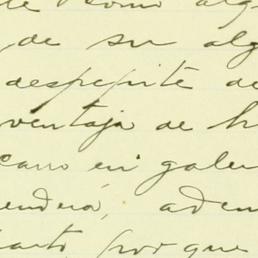 como alg
de su alg
despepite de
ventaja de h
carro en gale
endera, adem
anto, por que